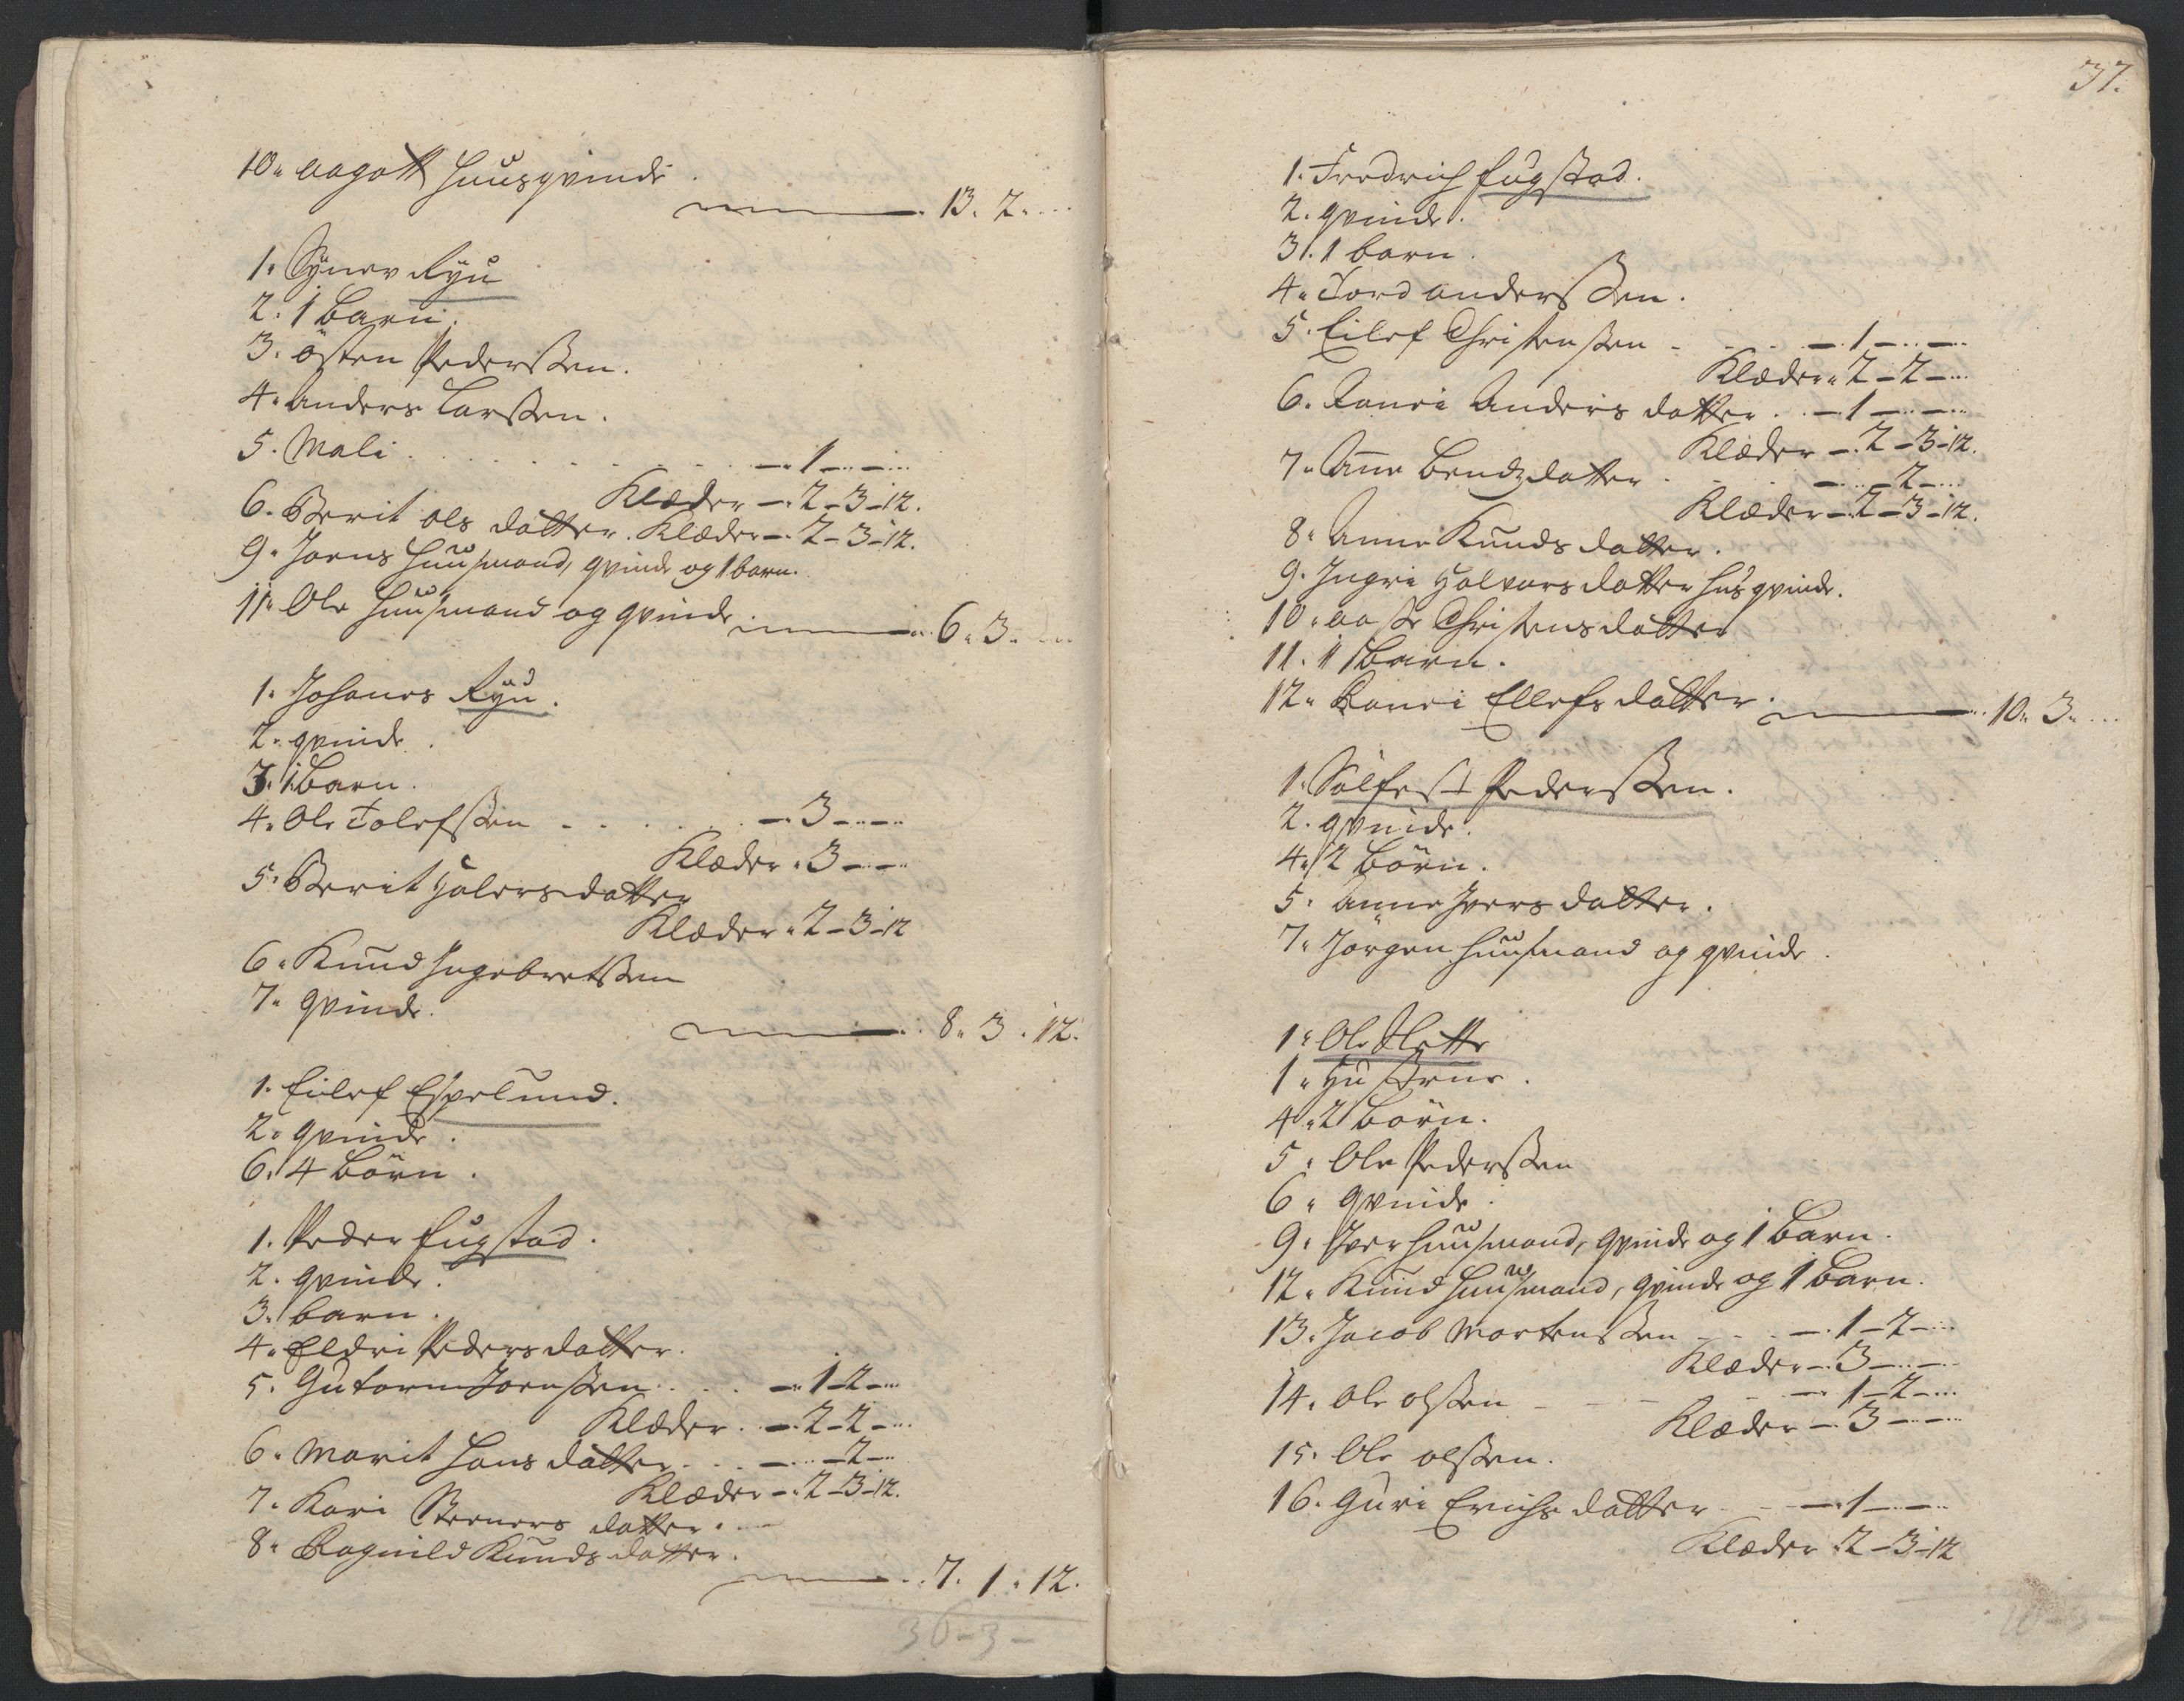 10. aagott huusqvinde
13. 2.
1. Synev Ryn
2. 1 barn.
3. östen Pederssen.
4. Anders Larssen.
5. Mali . . . 1
Klæder - 2 - 3 - 12.
6. Berit ols datter. Klæder - 2 - 3 - 12.
9. Joens huusmand, qvinde og 1 barn.
11. Ole huusmand og qvinde
6. 3.
1. Johanes Ryn.
2. qvinde.
3. 1 barn.
4. Ole Tolefssen . . . 3
Klæder . 3
5. Berit datter
Klæder . 2 - 3 - 12
6. Knud Ingebretssen
7. qvinde.
8. 3. 12.
1. Eilef Espelund.
2. qvinde.
6. 4 börn.
1. Peder fugstad.
2. qvinde.
3. barn.
4. Eldri Peders datter.
5. Gutorm Joenssen . . . 1 - 2
Klæder . - 2 - 2 -
6. Marit Hans datter . . . 2
Klæder - 2 - 3 - 12.
7. Kari datter.
8. Ragnild Knuds datter.
7. 1. 12.
36 - 3 -
37.
1. Fredrich fugstad.
2. qvinde.
3. 1 barn.
4. Tord anderssen.
5. Eilef Christenssen - . . - 1
Klæder . 2 - 2
6. Ranei Anders datter . - 1
Klæder - 2 - 3 - 12.
7. Anne Bendz datter . . . 2
Klæder - 2 - 3 - 12.
8. Anne Knuds datter.
9. Ingri Halvors datter husqvinde.
10. aase Christens datter
11. 1 barn.
12. Ranei Ellefs datter.
10. 3.
1. Sölfest Pederssen.
2. qvinde.
4. 2 börn.
5. Anne Ivers datter.
7. Jörgen huusmand og qvinde.
1. Ole Slette
1. Hustrue.
4. 2 börn.
5. Ole Pederssen
6. qvinde.
9. Iver huusmand, qvinde og 1 barn.
12. Knud huusmand, qvinde og 1 barn.
13. Jacob Mortenssen - . . - 1 - 2
Klæder - 3
14. Ole olssen - - - 1 - 2
Klæder - 3
15. Ole olssen.
16. Guri Erichs datter - - 1
Klæder . 2 - 3 - 12